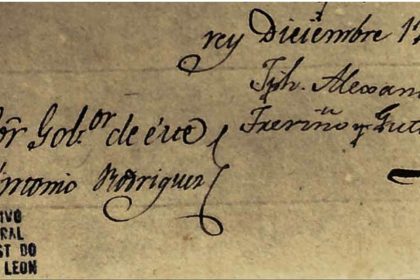 rey Diciembre 1
Jph. Alexan
Treviño y Gut
or Gob.or de éste
Antonio Rodriguez
IVO
RAL
ST DO
LEON